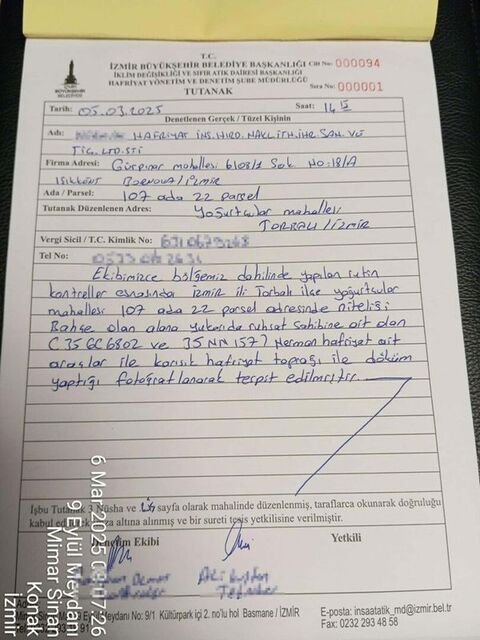 T.C.
İZMİR BÜYÜKŞEHİR BELEDİYE BAŞKANLIĞI Cilt No: 000094
İKLİM DEĞİŞİKLİĞİ VE SIFIR ATIK DAİRESİ BAŞKANLIĞI
HAFRİYAT YÖNETİM VE DENETİM ŞUBE MÜDÜRLÜĞÜ Sıra No: 000001
İZMİR
BÜYÜKŞEHİR
BELEDİYESİ
TUTANAK
Tarih: 05.03.2025 Saat: 14
Denetlenen Gerçek / Tüzel Kişinin
Adı: HAFRİYAT İNŞ. HIRD. NAKL. İTH. İHR SAN. VE
TİC. LTD. ŞTİ
Firma Adresi: Gürpınar mahallesi 6108/1 Sok. No: 18/A
IŞIKKENT BORNOVA / İZMİR
Ada / Parsel: 107 ada 22 parsel
Tutanak Düzenlenen Adres: Yoğurtçular mahallesi
TORBALI / İZMİR
Vergi Sicil / T.C. Kimlik No:
Tel No:
Ekibimizce bölgemiz dahilinde yapılan rutin
kontroller esnasında İzmir ili Torbalı ilçe Yoğurtçular
mahallesi 107 ada 22 parsel adresinde niteliği
Bahçe olan alana yukarıda ruhsat sahibine ait olan
35 NN 1577 hafriyat ait
araçlar ile karışık hafriyat toprağı ile döküm
yaptığı fotoğraflanarak tespit edilmiştir.
İşbu Tutanak 3 Nüsha ve sayfa olarak mahalinde düzenlenmiş, taraflarca okunarak doğruluğu
kabul edilerek imza altına alınmış ve bir sureti tesis yetkilisine verilmiştir.
Denetim Ekibi Yetkili
Meydanı No: 9/1 Kültürpark içi 2. no'lu hol Basmane / İZMİR
E-posta: insaatatik_md@izmir.bel.tr
Fax: 0232 293 48 58
6 Mar 2025
9 Eylül Meydanı
Mimar Sinan
Konak
İzmir